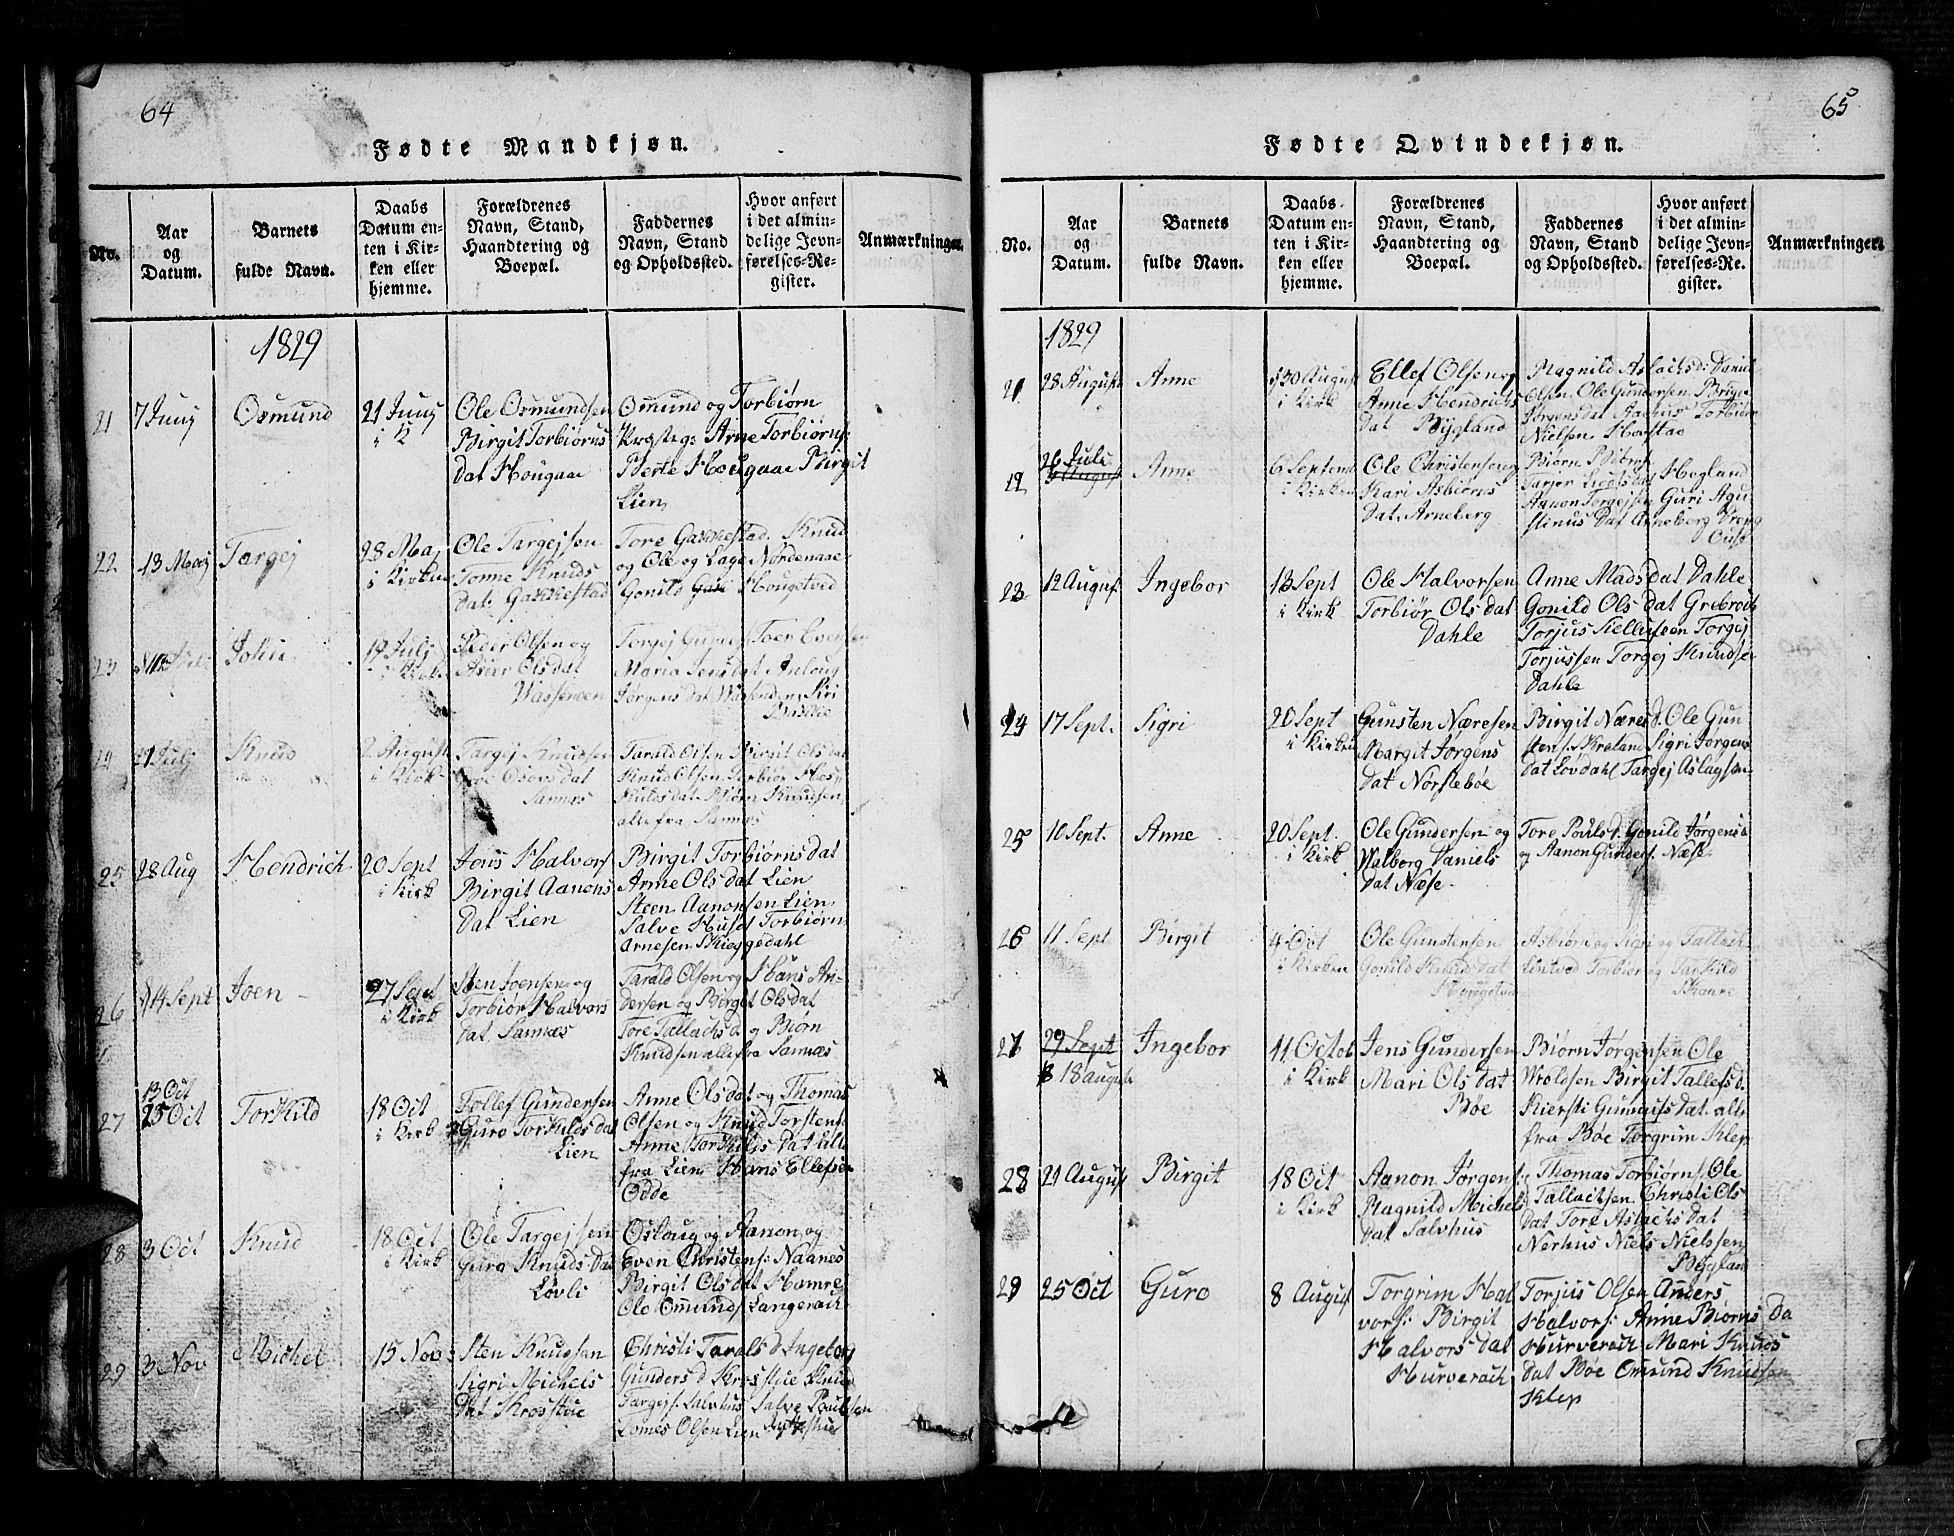 64
Fødte Mandkjøn.
No.
Aar
og
Datum.
Barnets
fulde Navn.
Daabs
Datum en-
ten i Kir-
ken eller
hjemme.
Forældrenes
Navn, Stand,
Haandtering og
Boepæl.
Faddernes
Navn, Stand
og Opholdssted.
Hvor anført
i det almin-
delige Jevn-
førelses-Re-
gister.
Anmærkninger.
1829
21
7 Junj
Osmund
21 Junj
i K
Ole Osmundsen
Birgit Torbiørns
Dat Hougaae
Osmund og Torbiørn
Arne Torbiørns:
Berte Hougaae Birgit
Lien
22
13 Maj
Targej
28 Maj
i Kirken
Ole Targejsen
Tonne Knuds
Dat:
Tore Knud
og Ole og Lage Nordenaae
Gonild Hougetved
23
John
19 Julj
i Kirken
Peder Olsen og
Asier Olsdat
Wassenden
Torgej Toer Evensen
Maria Jensdat Anloug
Jørgens dat Wassenden
24
Julj
Knud
2 August
i Kirk
Targej Knudsen
Sannæs
Tarald Olsen Birgit Olsdat
Knud Olsen Torbiør
Biørn Knudsen
alle fra Sannæs
25
28 Aug
Hendrich
20 Sept
i Kirk
Jens Halvors
Birgit Aanons
Dat Lien
Birgit Torbiørnsdat
Anne Olsdat Lien
Steen Aanonsen Lien
Salve Huset Torbiørn
Arnesen Skieggedahl
26
14 Sept
Joen
27 Sept
i Kirk
Sten Joensen og
Torbiør Halvors
Dat Sannæs
Tarald Olsen og Hans An-
dersen og Birget Olsdat
Tore Tallachs d. og Biørn
Knudsen alle fra Sannæs
27
13 Oct
25 Oct
Torkild
18 Oct
i Kirk
Tollef Gundersen
Guro Torkilds Dat
Lien
Anne Olsdat og Thomas
Olsen og Knud Torstens
Anne Torkilds Dat alle
fra Lien Hans Ellefsen
Odde
28
3 Oct
Knud
18 Oct
i Kirk
Ole Targejsen
Guro Knuds Dat
Løvli
Osloug og Aanon og
Even Christens: Naanes
Birgit Olsdat Hamre
Ole Omunds Langerach
29
3 Nov
Michel
15 Nov
Sten Knudsen
Sigri Michels
Dat Krosstue
Christi Taralsd Ingeborg
Gunders d Krosstue Knud
Targejs: Salvhus Salve Poulsen
Tomes Olsen Lien
65
Fødte Qvindekjøn.
No.
Aar
og
Datum.
Barnets
fulde Navn.
Daabs-
Datum en-
ten i Kir-
ken eller
hjemme.
Forældrenes
Navn, Stand,
Haandtering og
Boepæl.
Faddernes
Navn, Stand
og Opholdssted.
Hvor anført
i det almin-
delige Jevn-
førelses-Re-
gister.
Anmærkninger.
1829
21
28 August
Anne
30 August
i Kirk
Ellef Olsen og
Anne Hendrichs
Dat Bygland
Ragnild Aslachsd: Daniel
Olsen Ole Gundersen Børge
Jørgensdat Torbiør
Nielsen Horstad
26 Juli
Anne
6 Septem
i Kirken
Ole Christensen og
Kari Asbiørns
Dat. Arneberg
Biørn Hegland
Aanon Torgejsen Guri Agu
stinus Dat Arneberg Dreng
23
12 August
Ingebor
13 Sept
i Kirk
Ole Halvorsen
Torbiør Ols dat
Dahle
Anne Mads dat Dahle
Gonild Ols dat Grebrock
Torjus Kellefsen Torgej
Torjussen Torgej Knudsen
Dahle
24
17 Sept.
Sigri
20 Sept
i Kirken
Gunsten Næresen
Margit Jorgens
Dat Norstebøe
Birgit Næresd. Ole Gun
stens: Skreland Sigri Jørgens
dat Løvdahl Targej Aslagsen
25
10 Sept.
Anne
20 Sept.
i Kirk
Ole Gundersen og
Walborg Daniels
Dat Næse
Tore Pouls d. Gonild Jørgens d
og Aanon Gunders. Næse
26
11 Sept
Birgit
4 Oct
i Kirken
Ole Gunstensen
Gonild Knuds dat
Asbiørn og Sigri og Tallach
Lintved Torbiør og Tarkild
Skaare
27
29 Sept
18 August
Ingebor
11 Octob
i Kirk
Jens Gundersen
Mari Ols dat
Bøe
Biørn Jørgensen Ole
Wroldsen Birgit Tallefs d.
Kiersti Gunnufs Dat. alle
fra Bøe Torgrim Klep
28
21 August
Birgit
18 Oct
i Kirk
Aanon Jørgens
Ragnild Michels
dat Salvhus
Thomas Torbiørns. Ole
Tallachsen Christi Ols
Dat Tore Aslachs Dat
Nerhus Niels Nielsen
Byglan
29
25 Oct
Guro
8 August
Torgrim Hal
vors: Birgit
Halvors dat
Hurverach
Torjus Olsen Anders
Halvors: Anne Biørns Da
Hurverach Mari Knuds
dat Bøe Omund Knudsen
Klep